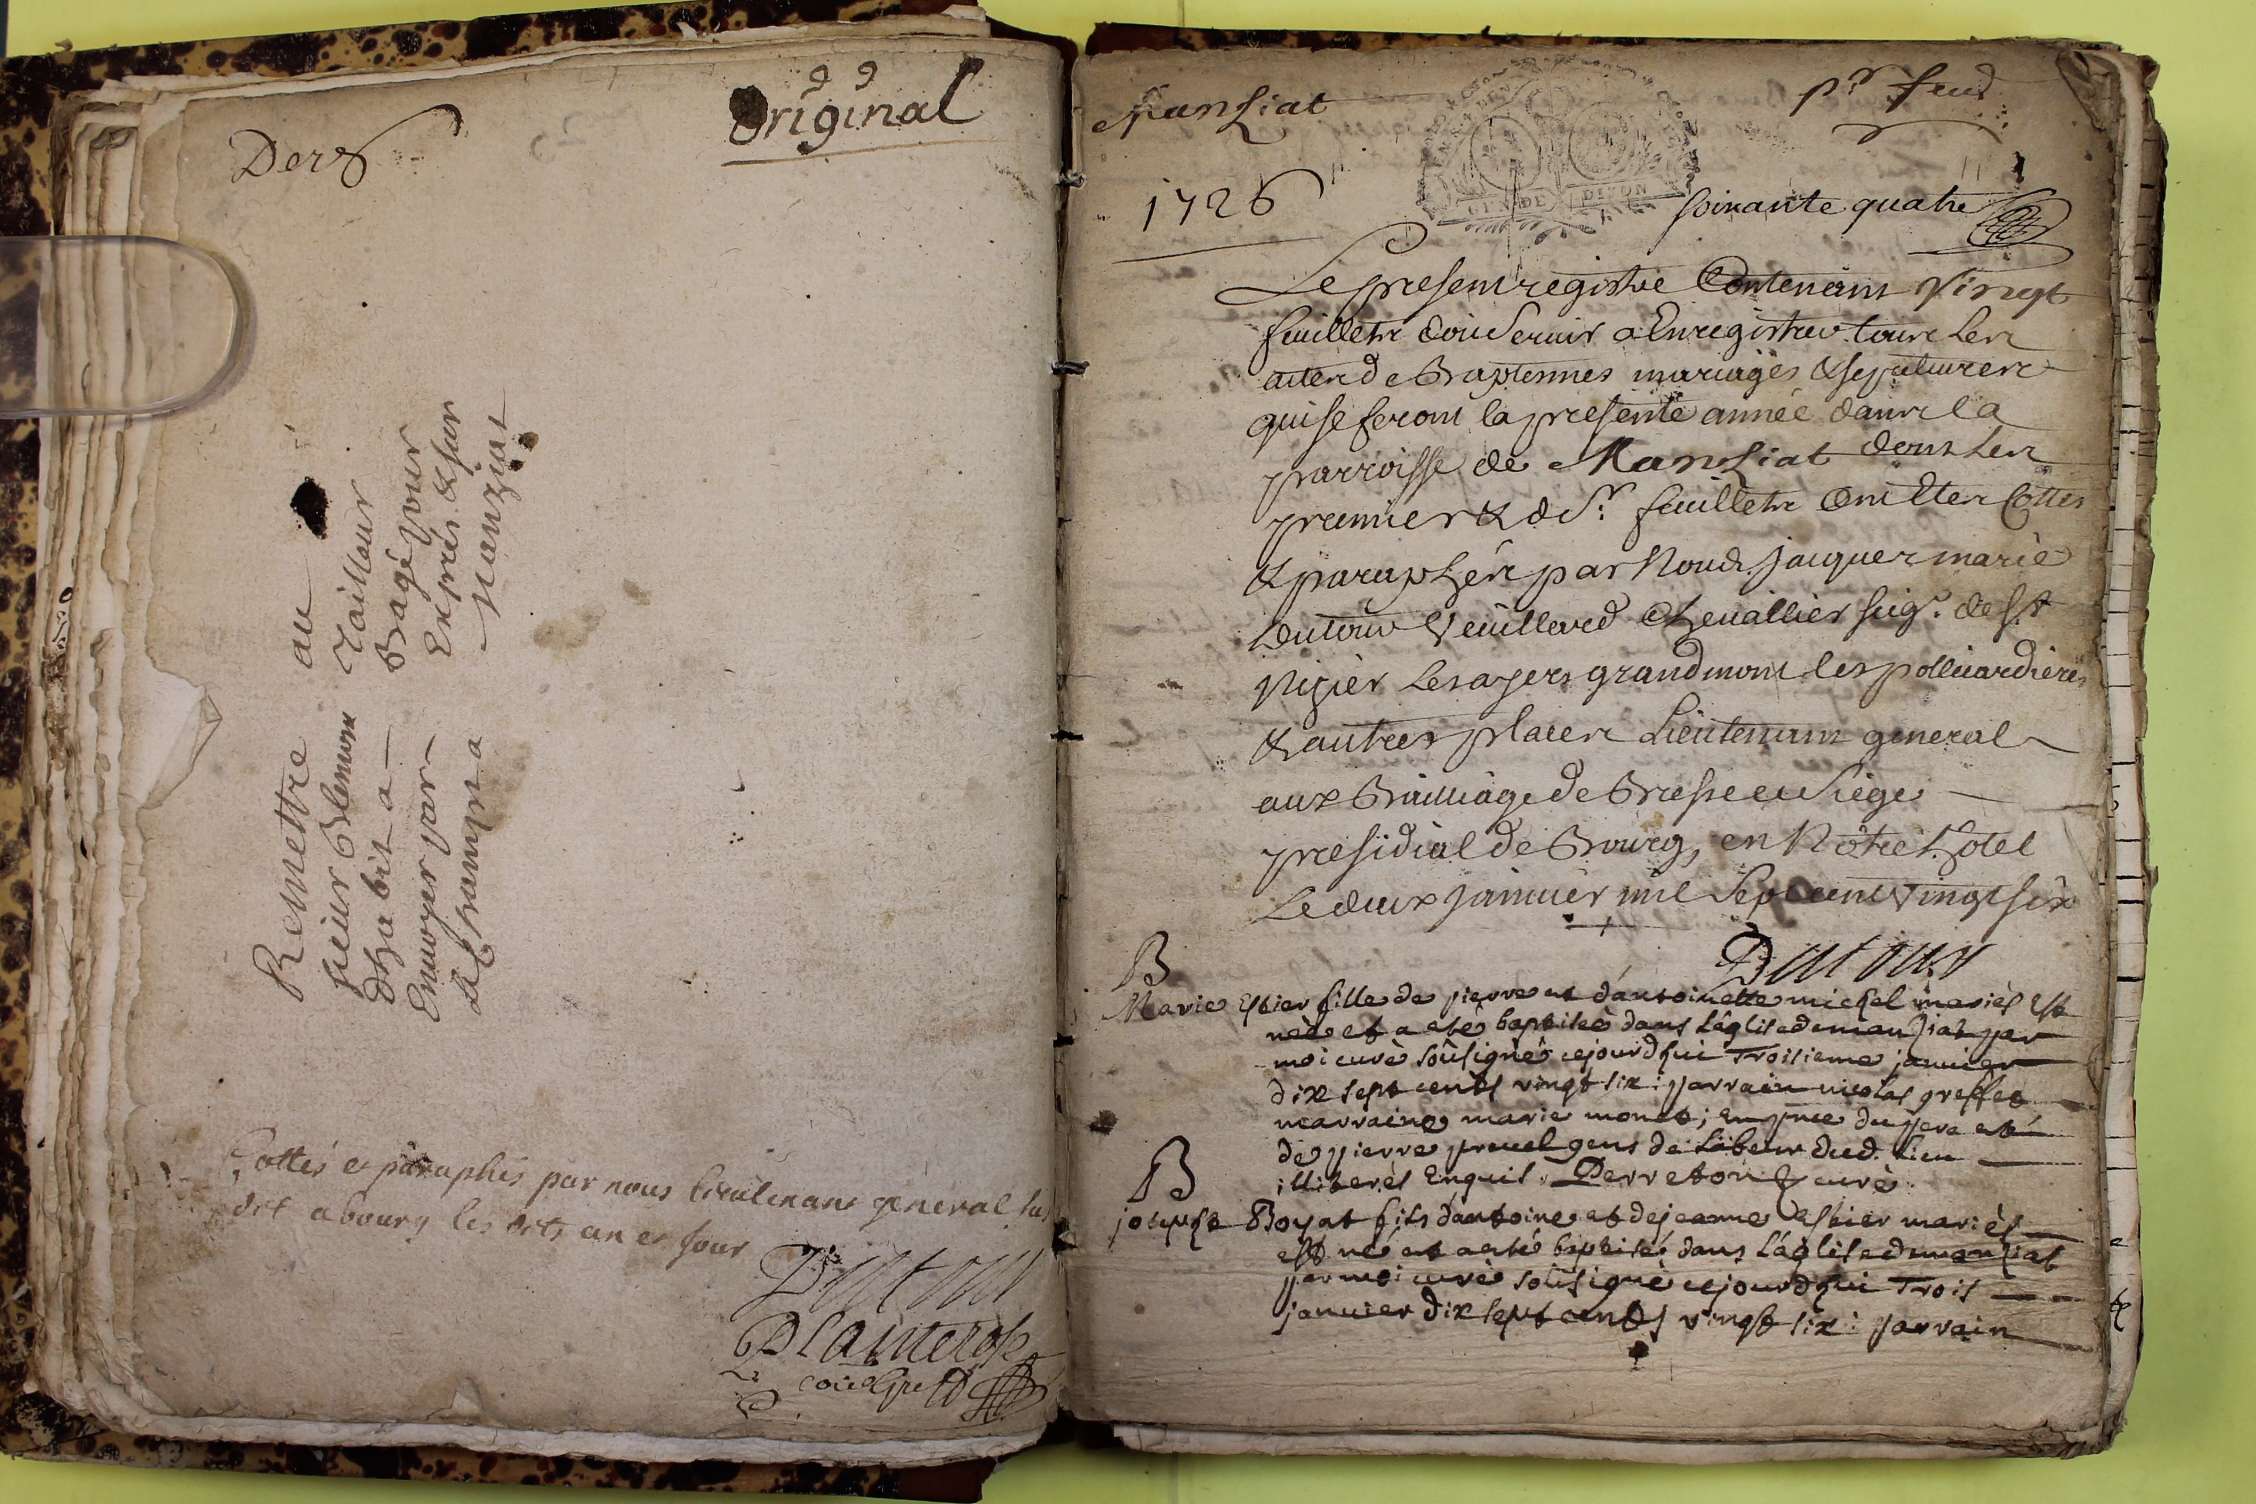 Original
Der
Remettre au
sieur Clement Tailleur
dhabit a Bagé pour
Envoyer par Exprés & sur
Le champ a Manziat
Cottés et paraphés par nous lieutenant general sus
dit a bourg les dits an et jour
Dutour
Manziat
pr feuil
1726
GEN DE DIJON
soixante quatre
Le present registre Contenant Vingt
feuillets doit servir a Enregistrer tous les
actes de Baptesmes mariages & sepultures
qui se feront la presente année dans la
parroisse de Manziat dont les
premier & der. feuillets ont Etés Cottés
& paraphés par Nous Jacques marie
Dutour Veuillard Chevallier seigr. de St
Nizier Lesayers grandmont les polliardieres
& autres places Lieutenant general
aux Bailliage de Bresse et Siege
presidial de Bourg, en Nôtre hôtel
Le deux Janvier mil Sept cent Vingt six
Dutour
B
Marie Estier fille de pierre et d'antoinette michel mariés Est
née et a eté baptisée dans L'église de manziat par
moi curé soûsigné cejourd'hui Troisieme janvier
dix sept cents vingt six : parrain nicolas greffet
marraine marie monet ; En pnce du pere et
de pierre pruvel gens de Labeur dud. Lieu
illiterés Enquis. Perreton curé
B
joseph Boyat fils d'antoine et de jeanne Estier mariés
est né et a esté baptisé dans L'église de manziat
par moi curé soûsigné cejourd'hui Trois
janvier dix sept cents vingt six : parrain